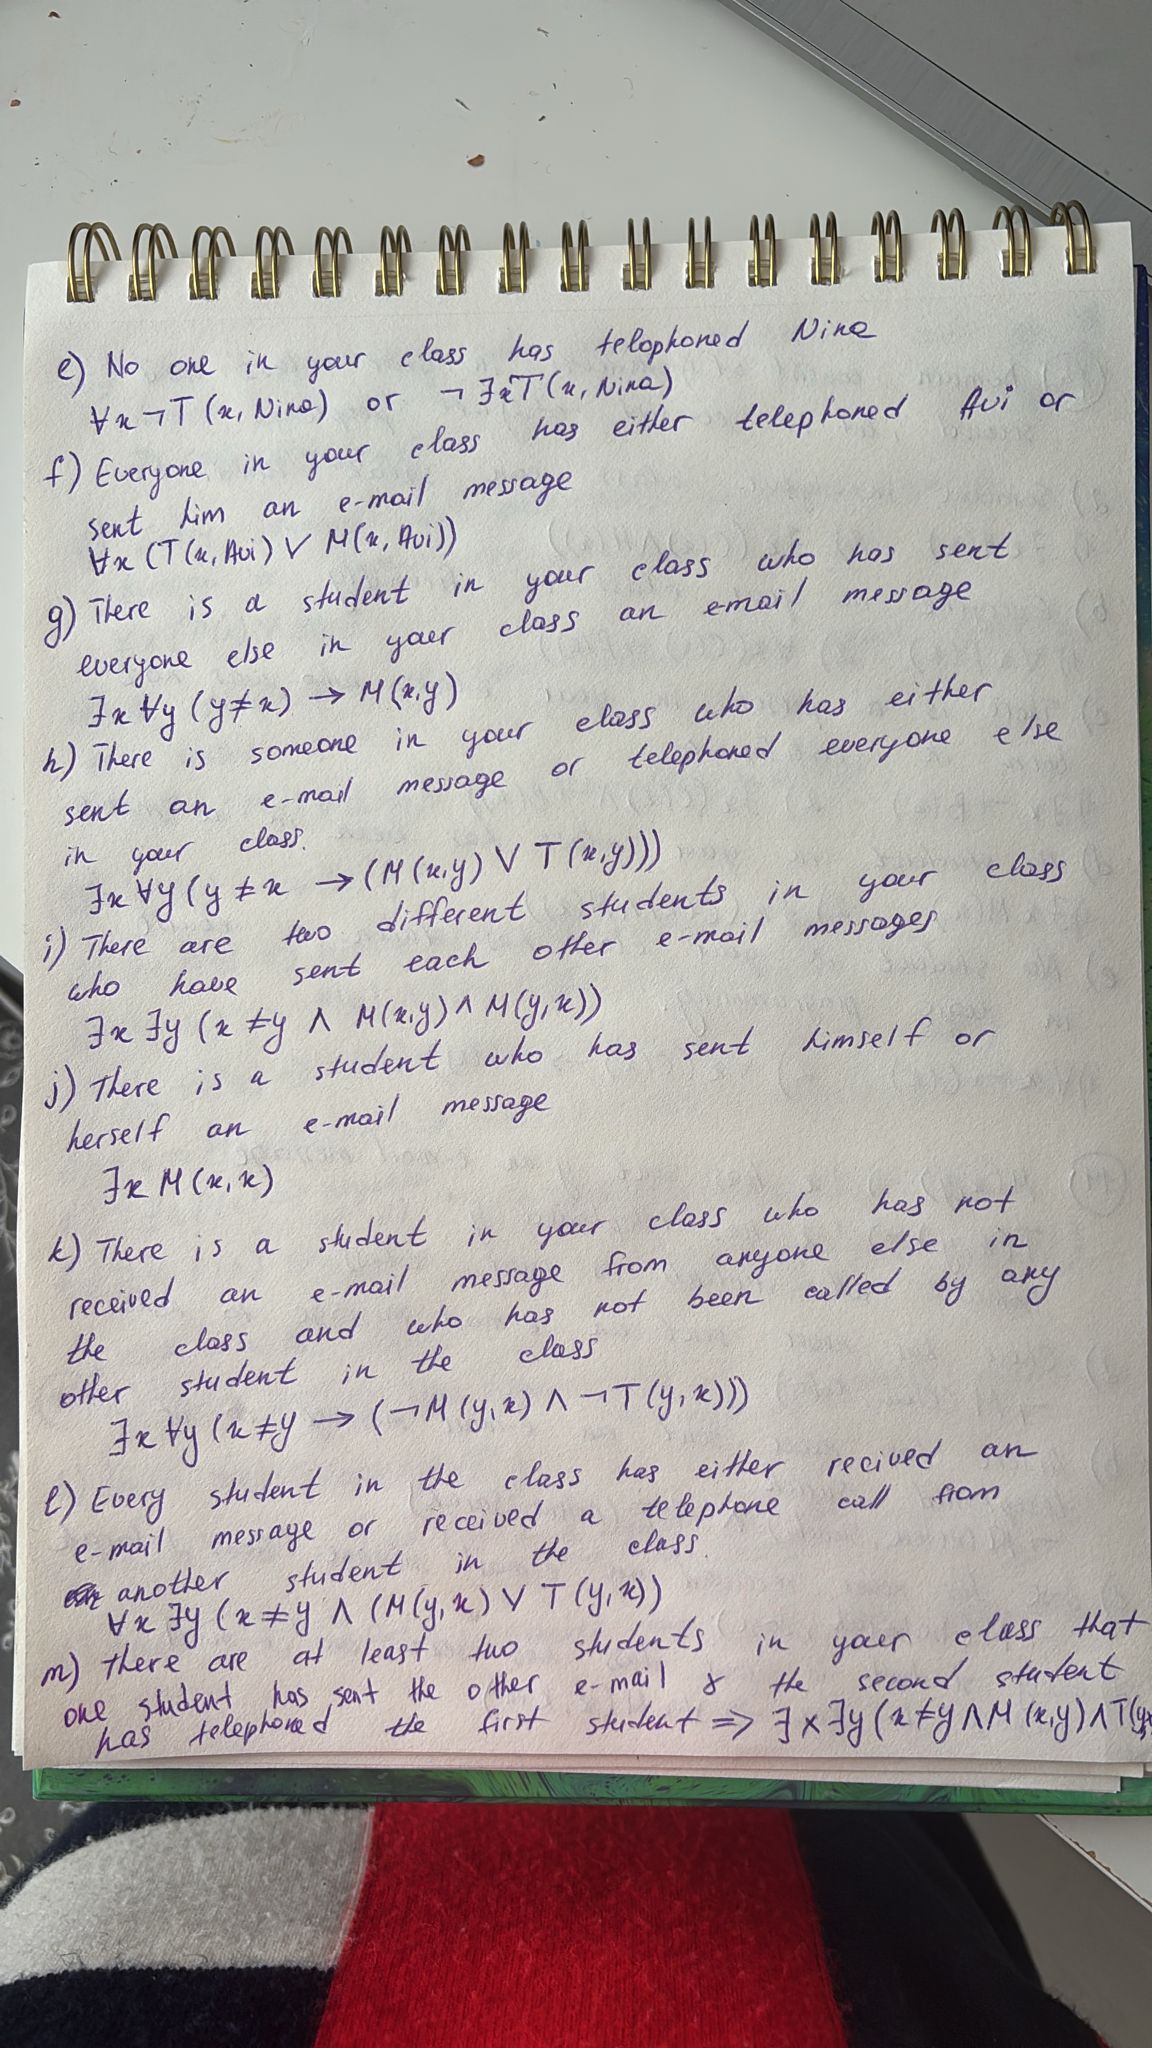 e) No one in your class has telophoned Nina
∀x ¬T(x, Nina) or ¬∃xT(x, Nina)
f) Everyone in your class has either telephoned Avi or
sent him an e-mail message
∀x (T(x, Avi) ∨ M(x, Avi))
g) There is a student in your class who has sent
everyone else in your class an email message
∃x ∀y (y≠x) → M(x,y)
h) There is someone in your class who has either
sent an e-mail message or telephoned everyone else
in your class.
∃x ∀y (y≠x → (M(x,y) ∨ T(x,y)))
i) There are two different students in your class
who have sent each other e-mail messages
∃x ∃y (x≠y ∧ M(x,y) ∧ M(y,x))
j) There is a student who has sent himself or
herself an e-mail message
∃x M(x,x)
k) There is a student in your class who has not
received an e-mail message from anyone else in
the class and who has not been called by any
other student in the class
∃x ∀y (x≠y → (¬M(y,x) ∧ ¬T(y,x)))
l) Every student in the class has either recived an
e-mail message or received a telephone call from
another student in the class.
∀x ∃y (x≠y ∧ (M(y,x) ∨ T(y,x))
m) there are at least two students in your class that
one student has sent the other e-mail & the second student
has telephoned the first student => ∃x∃y (x≠y ∧ M(x,y) ∧ T(y,x